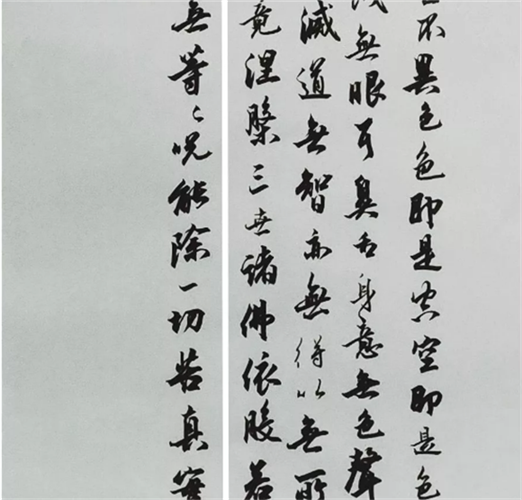 不異色色即是空空即是色
無眼耳鼻舌身意無色聲
滅道無智亦無得以無所
竟涅槃三世諸佛依般若
無等々呪能除一切苦真實